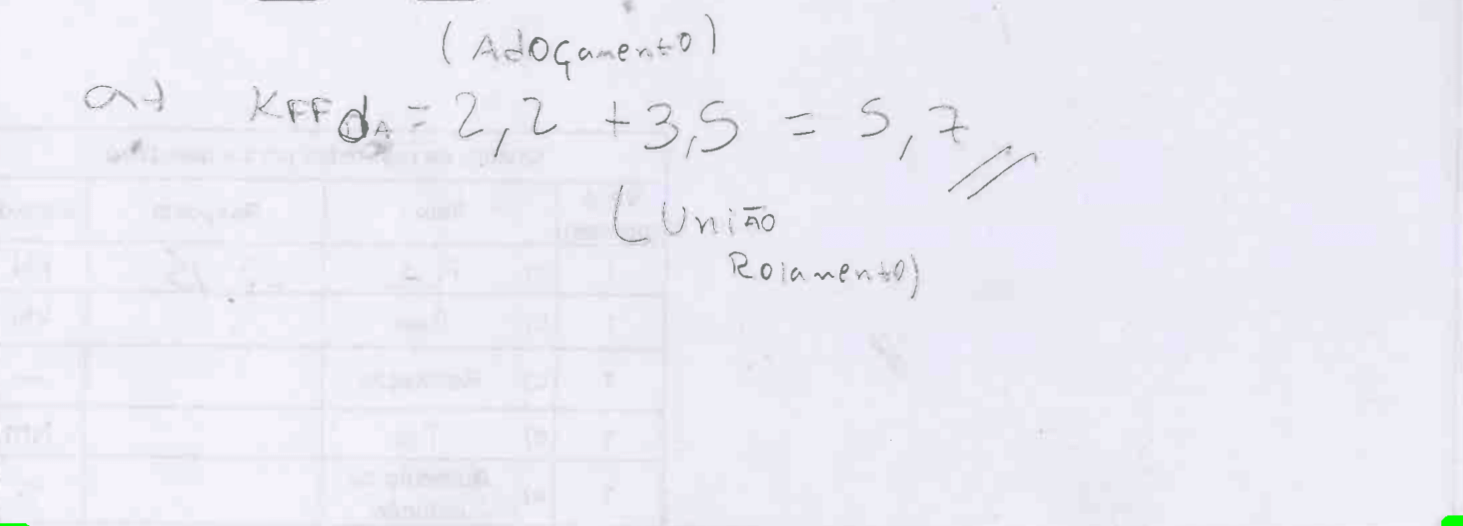 (AdOçamento)
a) KFFdA = 2,2 + 3,5 = 5,7
(União
Rolamento)